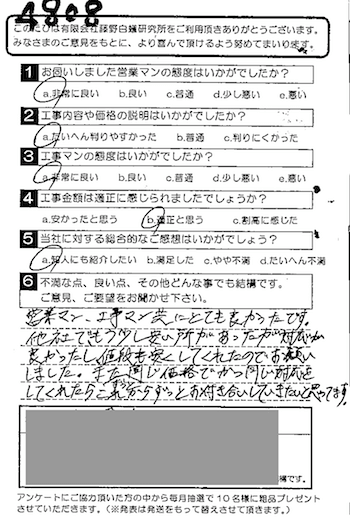 4808
このたびは有限会社藤野白蟻研究所をご利用頂きありがとうございます。
みなさまのご意見をもとに、より喜んで頂けるよう努めてまいります。
1 お伺いしました営業マンの態度はいかがでしたか？
a.非常に良い b.良い c.普通 d.少し悪い e.悪い
2 工事内容や価格の説明はいかがでしたか？
a.たいへん判りやすかった b.普通 c.判りにくかった
3 工事マンの態度はいかがでしたか？
a.非常に良い b.良い c.普通 d.少し悪い e.悪い
4 工事金額は適正に感じられましたでしょうか？
a.安かったと思う b.適正と思う c.割高に感じた
5 当社に対する総合的なご感想はいかがでしょう？
a.知人にも紹介したい b.満足した c.やや不満 d.たいへん不満
6 不満な点、良い点、その他どんな事でも結構です。
ご意見、ご要望をお聞かせ下さい。
営業マン、工事マン共にとても良かったです。
他社でもう少し安い所があったが対応が
良かったし値段も安くしてくれたのでお願い
しました。また同じ価格でかつ同じ対応を
してくれたらこれからずっとお付き合いしていきたいと思ってます。
構です。
アンケートにご協力頂いた方の中から毎月抽選で10名様に粗品プレゼント
させていただきます。（※発表は発送をもって替えさせて頂きます。）